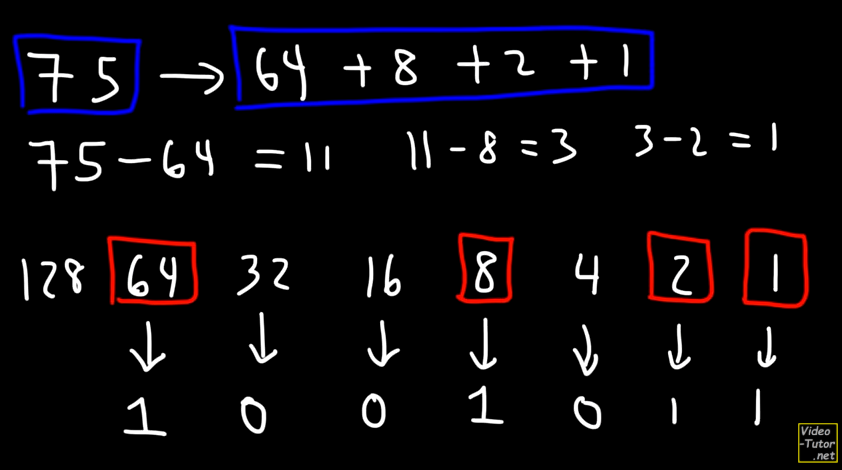 75 → 64 + 8 + 2 + 1
75 - 64 = 11 11 - 8 = 3 3 - 2 = 1
128 64 32 16 8 4 2 1
↓ ↓ ↓ ↓ ↓ ↓ ↓
1 0 0 1 0 1 1
Video
-Tutor
.net